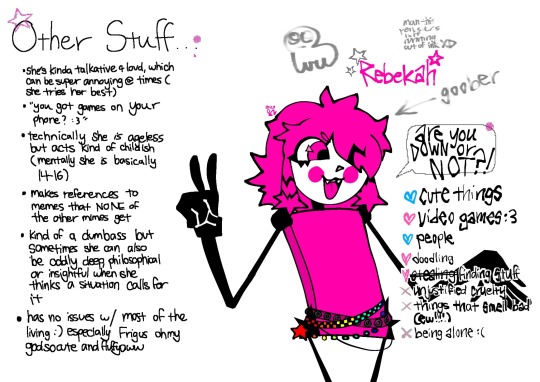 Other Stuff...
•she's kinda talkative & loud, which
can be super annoying @ times (
she tries her best)
•"you got games on your
phone? :3"
•technically she is ageless
but acts kind of childish
(mentally she is basically
14-16)
•makes references to
memes that NONE of
the other mimes get
•kind of a dumbass but
sometimes she can also
be oddly deep philosophical
or insightful when she
thinks a situation calls for
it
•has no issues w/ most of the
living :) especially Frigus ohmy
godsocute and fluffyuwu
man this
out of ink XD
Rebekah
goober
are you
DOWN or
NOT?!
cute things
video games :3
people
doodling
stealing finding stuff
unjustified cruelty
things that smell bad
(ew!!!)
being alone :(